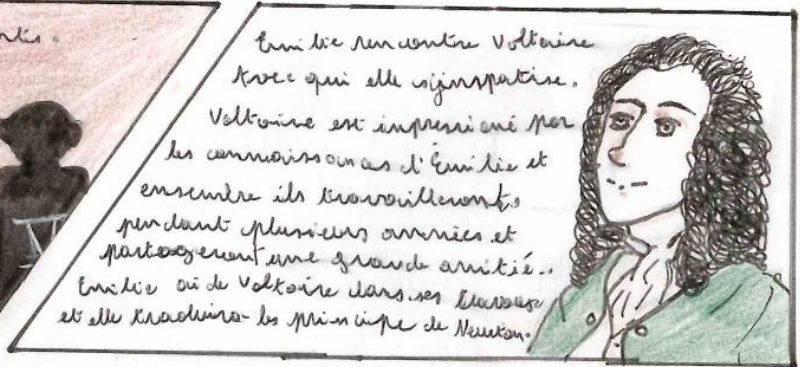 Emilie rencontre Voltaire
Avec qui elle sympatise.
Voltaire est impressioné par
les connaissances d'Émilie et
ensemble ils travaillerons
pendant plusieurs années et
partageront une grande amitié..
Emilie ai de Voltaire dans ses travaux
et elle traduira les principe de Newton.